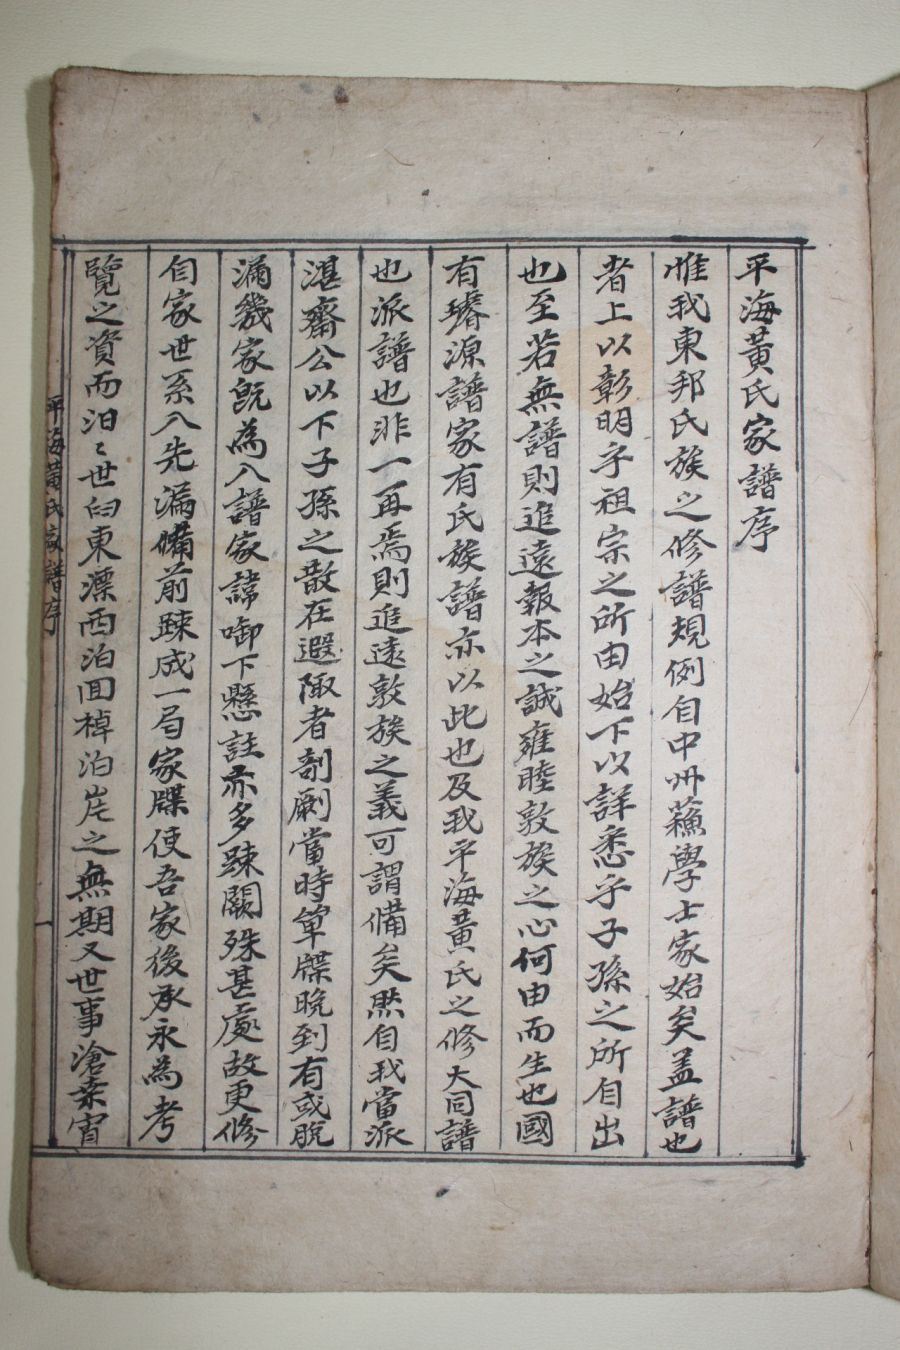 平海黃氏家譜序
惟我東邦氏族之修譜規例自中州蘓學士家始矣盖譜也
者上以彰明乎祖宗之所由始下以詳悉乎子孫之所自出
也至若無譜則追遠報本之誠雍睦敦族之心何由而生也國
有璿源譜家有氏族譜亦以此也及我平海黃氏之修大同譜
也派譜也非一再焉則追遠敦族之義可謂備矣然自我當派
湛齋公以下子孫之散在遐陬者剞劂當時單牒晩到有或脫
漏幾家旣為入譜家諱啣下懸註亦多踈闕殊甚處故更修
自家世系入先漏備前踈成一局家牒使吾家後承永為考
覽之資而汩〻世臼東漂西泊回棹泊岸之無期又世事滄桑
平海黃氏家譜序
一